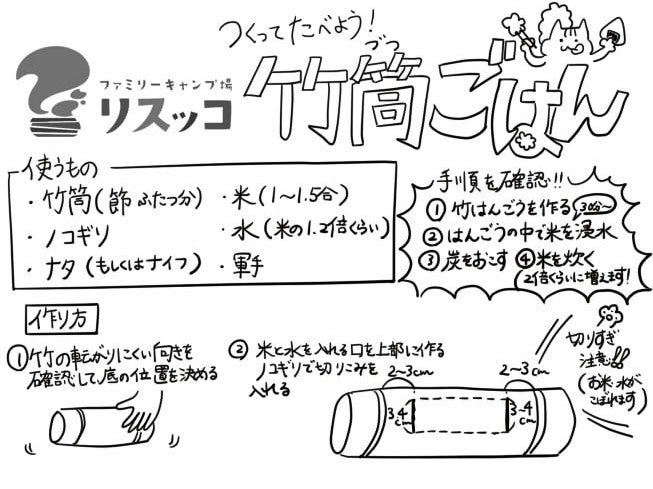 つくってたべよう！
づつ
竹筒ごはん
ファミリーキャンプ場
リスッコ
使うもの
・竹筒(節ふたつ分)
・ノコギリ
・ナタ(もしくはナイフ)
・米(1〜1.5合)
・水(米の1.2倍くらい)
・軍手
手順を確認!!
①竹はんごうを作る
30分〜
②はんごうの中で米を浸水
③炭をおこす ④米を炊く
2倍くらいに増えます!
作り方
①竹の転がりにくい向きを
確認して底の位置を決める
②米と水を入れる口を上部に作る
ノコギリで切りこみを
入れる
2〜3cm
2〜3cm
3-4
cm
3-4
cm
切りすぎ
注意!!
(お米・水が
こぼれます)